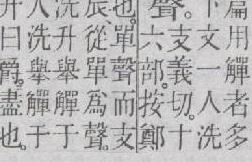 篇用觶者多
下文一人洗
聲。
支義切。十
六部。按鄭
也。單聲而支
辰從單爲聲。
洗升舉觶于
人洗舉觶于
升曰爵盡也。